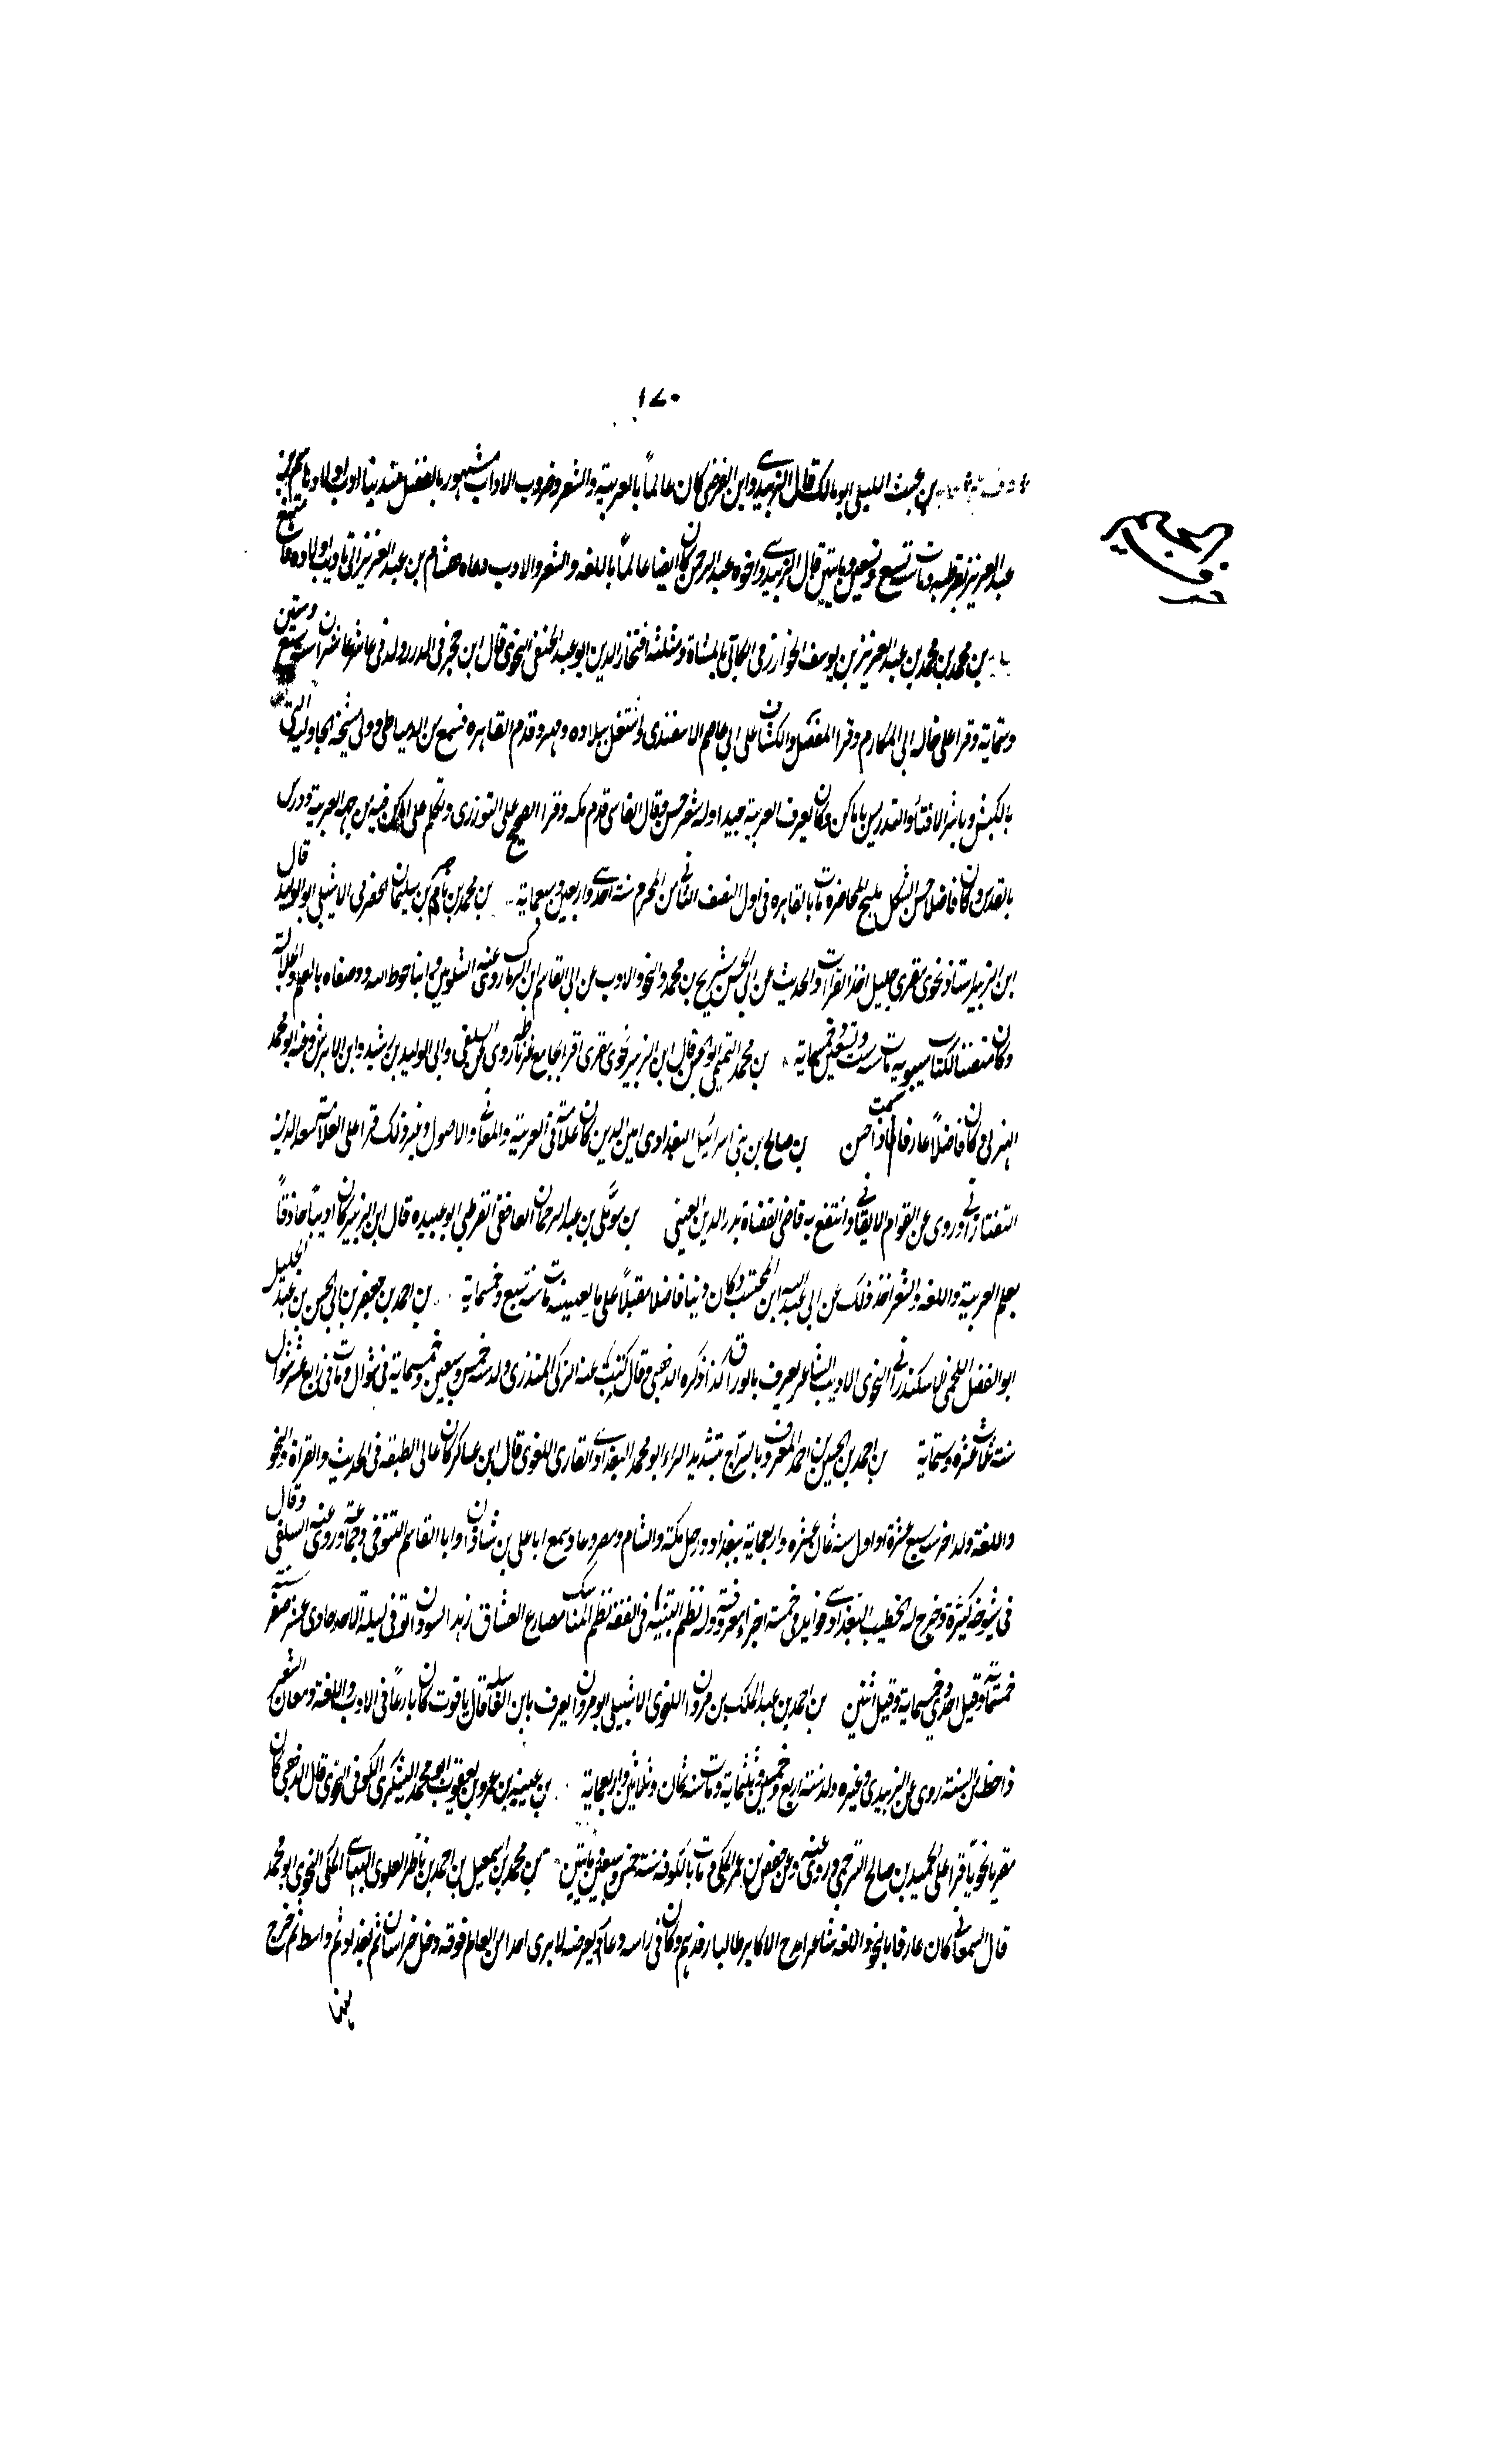 ١٧٠
بن مجيث الليلي ابو مالك قال الزبيدي وابن الفرضي كان عالماً بالعربية والشعر وضروب الاداب مشهور بالفضل متدينا ادب اولاد
عبد العزيز بقرطبة ومات سنة تسع وتسعين ومايتين قال الزبيدي واخوه عبد الرحمن كان ايضا عالماً باللغة والشعر والادب دعاه هشام بن عبد العزيز الى تاديب اولاده
بن محمد بن محمد بن عبد العزيز بن يوسف الخوارزمي الكاتي بالمثناة ومثلثة افتخار الدين ابو عبد الحنفي النحوي قال ابن حجر في الدرر ولد في عاشر سنة وستين
وستماية وقرا على خاله ابي المكارم وقرا المفصل والكشاف على ابي عاصم الاسفندي واشتغل ببلاده ومهر وقدم القاهرة فسمع من الدمياطي وولي مشيخة الجاولية التي
بالكبش وباشر الافتاء والتدريس باماكن وكان يعرف العربية جيدا وله شعر حسن وقال الفاسي قدم مكة وقرا الصحيح على التوزري وتكلم على اماكن فيه من جهة العربية ودرس
بالقدس وكان فاضلا حسن الشكل مليح المحاضرة مات بالقاهرة في اول النصف الثاني من المحرم سنة احدى واربعين وسبعماية بن محمد بن بن سليمان الحضرمي الاشبيلي ابو الوليد قال
ابن الزبير استاذ نحوي مقري جليل اخذ القراات والحديث عن ابي الحسن شريح بن محمد والنحو والادب عن ابي القاسم ابن الرماك روى عنه الشلوبين وابنا حوط الله ووصفاه بالعلم والجلالة
وكان متقنا لكتاب سيبويه مات سنة ست وتسعين وخمسماية بن محمد التميمي ابو الحسن قال ابن الزبير نحوي مقري اقرا بجامع غرناطة روى عن السلفي وابي الوليد بن رشيد وابن الابرش وعنه ابو محمد
وكان فاضلاً عارفا سمت بن صالح بن بني اسرائيل البغدادي امين الدين كان علامة في العربية والمعاني والاصول وغير ذلك قرا على العلامة سعد الدين
التفتازاني وروى عن القوام الاتقاني وانتفع به قاضي القضاة بدر الدين العيني بن بن عبد الرحمان الغافقي القرطبي ابو عبيده قال ابن الزبير كان اديباً حاذقاً
بعلم العربية واللغة والشعر اخذ ذلك عن ابي عبد الله ابن المحتسب وكان دينا فاضلا مقبلاً على ما يعنيه مات سنة سبع وخمسماية بن احمد بن جعفر بن ابي الحسن بن عبد الجليل
ابو الفضل اللخمي الاسكندراني النحوي الاديب الشاعر يعرف بالوراق كذا ذكره الذهبي وقال كتبت عنه الزكي المنذري ولد سنة خمس وسبعين وخمسماية في شوال ومات في رابع عشر شوال
سنة ثمان عشرة وستماية بن احمد بن الحسين بن احمد المعروف بالسراج بتشديد الراء ابو محمد البغدادي القاري اللغوي قال ابن عساكر كان عالي الطبقة في الحديث والقراة والنحو
واللغة ولد اخر سبع عشرة او اول سنة ثمان عشرة واربعماية ببغداد ورحل مكة والشام ومصر وعاد وسمع ابا علي بن شاذان وابا القاسم التنوخي وجماعة وروى عنه السلفي وقال
في شيوخه كثرة وخرج له الخطيب البغدادي فوايد في خمسة اجزاء معروفة وله نظم التنبيه في الفقه نظم المناسك مصارع العشاق زهد السودان توفي ليلة الاحد حادي عشر صفر سنة
خمسماية وقيل احدى وخمسماية وقيل اثنين بن احمد بن عبد الملك بن مروان اللغوي الاشبيلي ابو مروان يعرف بابن الغاسلة قال ياقوت كان بارعاً في الادب واللغة ومعاني الشعر
ذا حظ من السنة روى عن الزبيدي وغيره ولد سنة اربع وخمسين وثلثماية ومات سنة ثمان وثلاثين واربعماية بن عيينة بن عمرو بن يعقوب ابو محمد اليشكري الكوفي النحوي قال الذهبي كان
مقريا نحويا قرا على الحميد بن صالح البرجمي وروى عنه وعن جعفر بن عمر المكي مات بالكوفة سنة خمس وسبعين ومايتين بن محمد بن اسمعيل بن احمد بن ناظر العلوي المكي النحوي ابو محمد
قال السمعاني كان عارفا بالنحو واللغة شاعرا مدح الاكابر طالبا رفدهم وكان في راسه دعاو عريضة لا يرى احدا من العالم فوقه دخل خراسان ثم بغداد ثم واسط ثم خرج